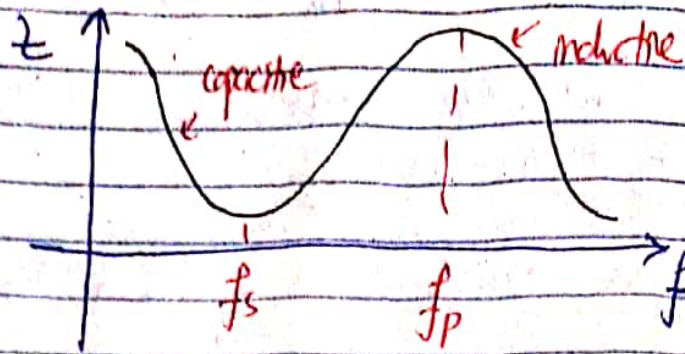 Z
capacitive
inductive
fs
fp
f